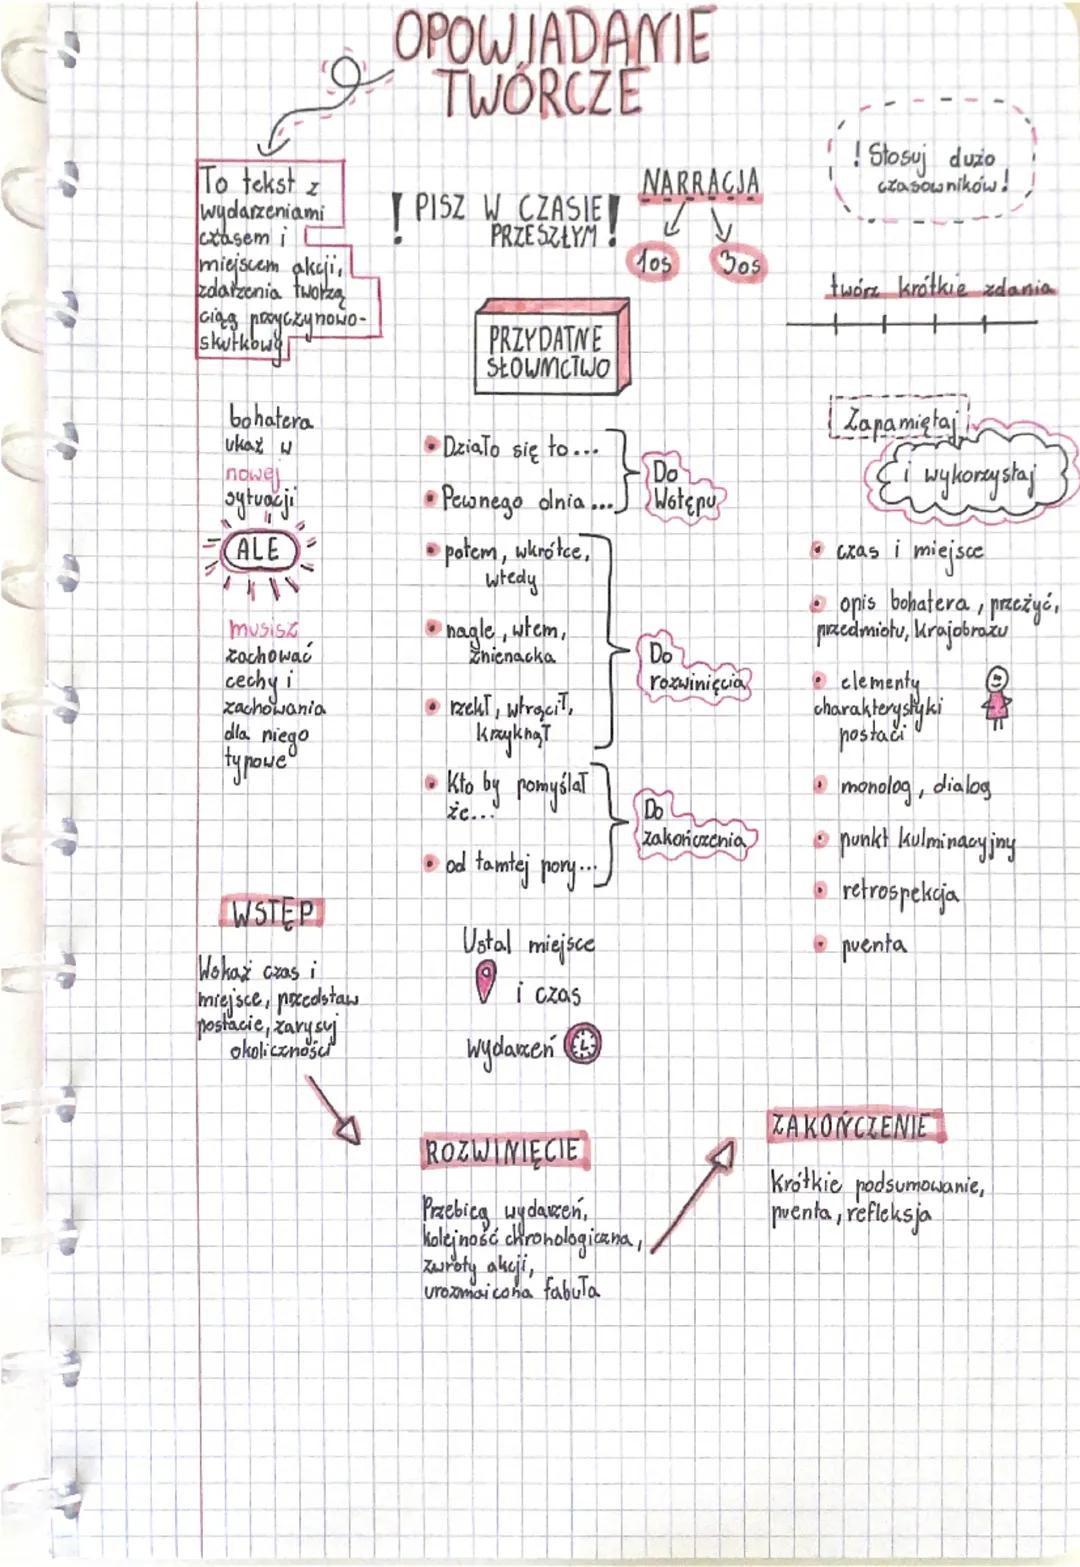 OPOWIADANIE
TWÓRCZE
To tekst z
wydarzeniami
czasem i
miejscem akcji,
zdarzenia tworzą
ciąg przyczynowo-
skutkowy
! PISZ W CZASIE !
PRZESZŁYM
NARRACJA
1os 3os
! Stosuj dużo
czasowników!
twórz krótkie zdania
PRZYDATNE
SŁOWNICTWO
bohatera
ukaż w
nowej
sytuacji
ALE
musisz
zachować
cechy i
zachowania
dla niego
typowe
• Działo się to...
• Pewnego dnia ...
Do
Wstępu
• potem, wkrótce,
wtedy
• nagle, wtem,
znienacka
• rzekł, wtrącił,
krzyknął
Do
rozwinięcia
• Kto by pomyślał
że...
• od tamtej pory...
Do
zakończenia
Zapamiętaj
i wykorzystaj
• czas i miejsce
• opis bohatera, przeżyć,
przedmiotu, krajobrazu
• elementy
charakterystyki
postaci
• monolog, dialog
• punkt kulminacyjny
• retrospekcja
• puenta
WSTĘP
Wskaż czas i
miejsce, przedstaw
postacie, zarysuj
okoliczności
Ustal miejsce
i czas
wydarzeń
ROZWINIĘCIE
Przebieg wydarzeń,
kolejność chronologiczna,
zwroty akcji,
urozmaicona fabuła
ZAKOŃCZENIE
Krótkie podsumowanie,
puenta, refleksja